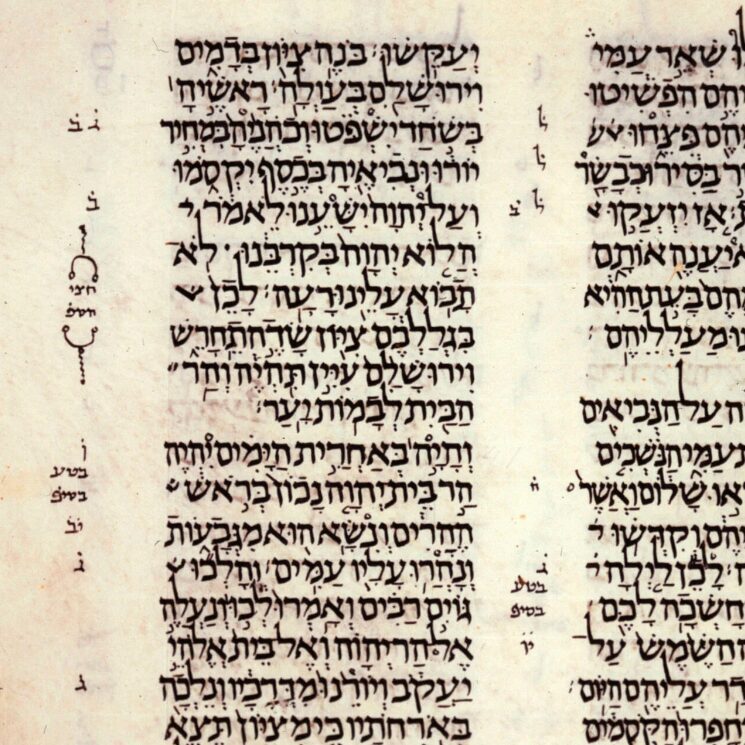 שְׁאֵר עַמִּי
הִפְשִׁיטוּ
פִּצֵּחוּ
בַּסִּיר וּכְבָשָׂר
אָז יִזְעֲקוּ
יַעֲנֶה אוֹתָם
בָּעֵת הַהִיא
מַעַלְלֵיהֶם׃
עַל הַנְּבִיאִים
הַנֹּשְׁכִים
שָׁלוֹם וַאֲשֶׁר
וְקִדְּשׁוּ
לָכֵן לַיְלָה
לָכֶם
הַשֶּׁמֶשׁ עַל
עֲלֵיהֶם הַיּוֹם׃
הַקֹּסְמִים
בטע
בסיפ
יְעַקֵּשׁוּ׃ בֹּנֶה צִיּוֹן בְּדָמִים
וִירוּשָׁלִַם בְּעַוְלָה׃ רָאשֶׁיהָ
בְּשֹׁחַד יִשְׁפֹּטוּ וְכֹהֲנֶיהָ בִּמְחִיר
יוֹרוּ וּנְבִיאֶיהָ בְּכֶסֶף יִקְסֹמוּ
וְעַל יְהוָה יִשָּׁעֵנוּ לֵאמֹר
הֲלוֹא יְהוָה בְּקִרְבֵּנוּ לֹא
תָבוֹא עָלֵינוּ רָעָה׃ לָכֵן
בִּגְלַלְכֶם צִיּוֹן שָׂדֶה תֵחָרֵשׁ
וִירוּשָׁלִַם עִיִּין תִּהְיֶה וְהַר
הַבַּיִת לְבָמוֹת יָעַר׃
וְהָיָה בְּאַחֲרִית הַיָּמִים יִהְיֶה
הַר בֵּית יְהוָה נָכוֹן בְּרֹאשׁ
הֶהָרִים וְנִשָּׂא הוּא מִגְּבָעוֹת
וְנָהֲרוּ עָלָיו עַמִּים׃ וְהָלְכוּ
גּוֹיִם רַבִּים וְאָמְרוּ לְכוּ וְנַעֲלֶה
אֶל הַר יְהוָה וְאֶל בֵּית אֱלֹהֵי
יַעֲקֹב וְיוֹרֵנוּ מִדְּרָכָיו וְנֵלְכָה
בְּאֹרְחֹתָיו כִּי מִצִּיּוֹן תֵּצֵא
חצי
הספ
בטע
בסיפ